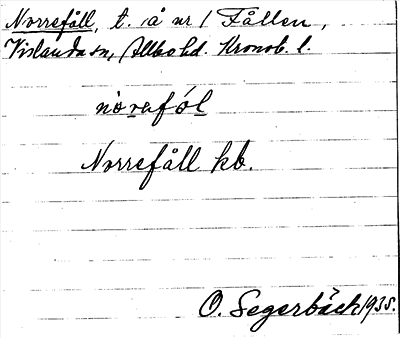 Norrefåll, t. å nr 1 Fållen,
Vislanda sn, Allbo hd. Kronob. l.
nòrafól
Norrefåll kb.
O. Segerbäck 1935.